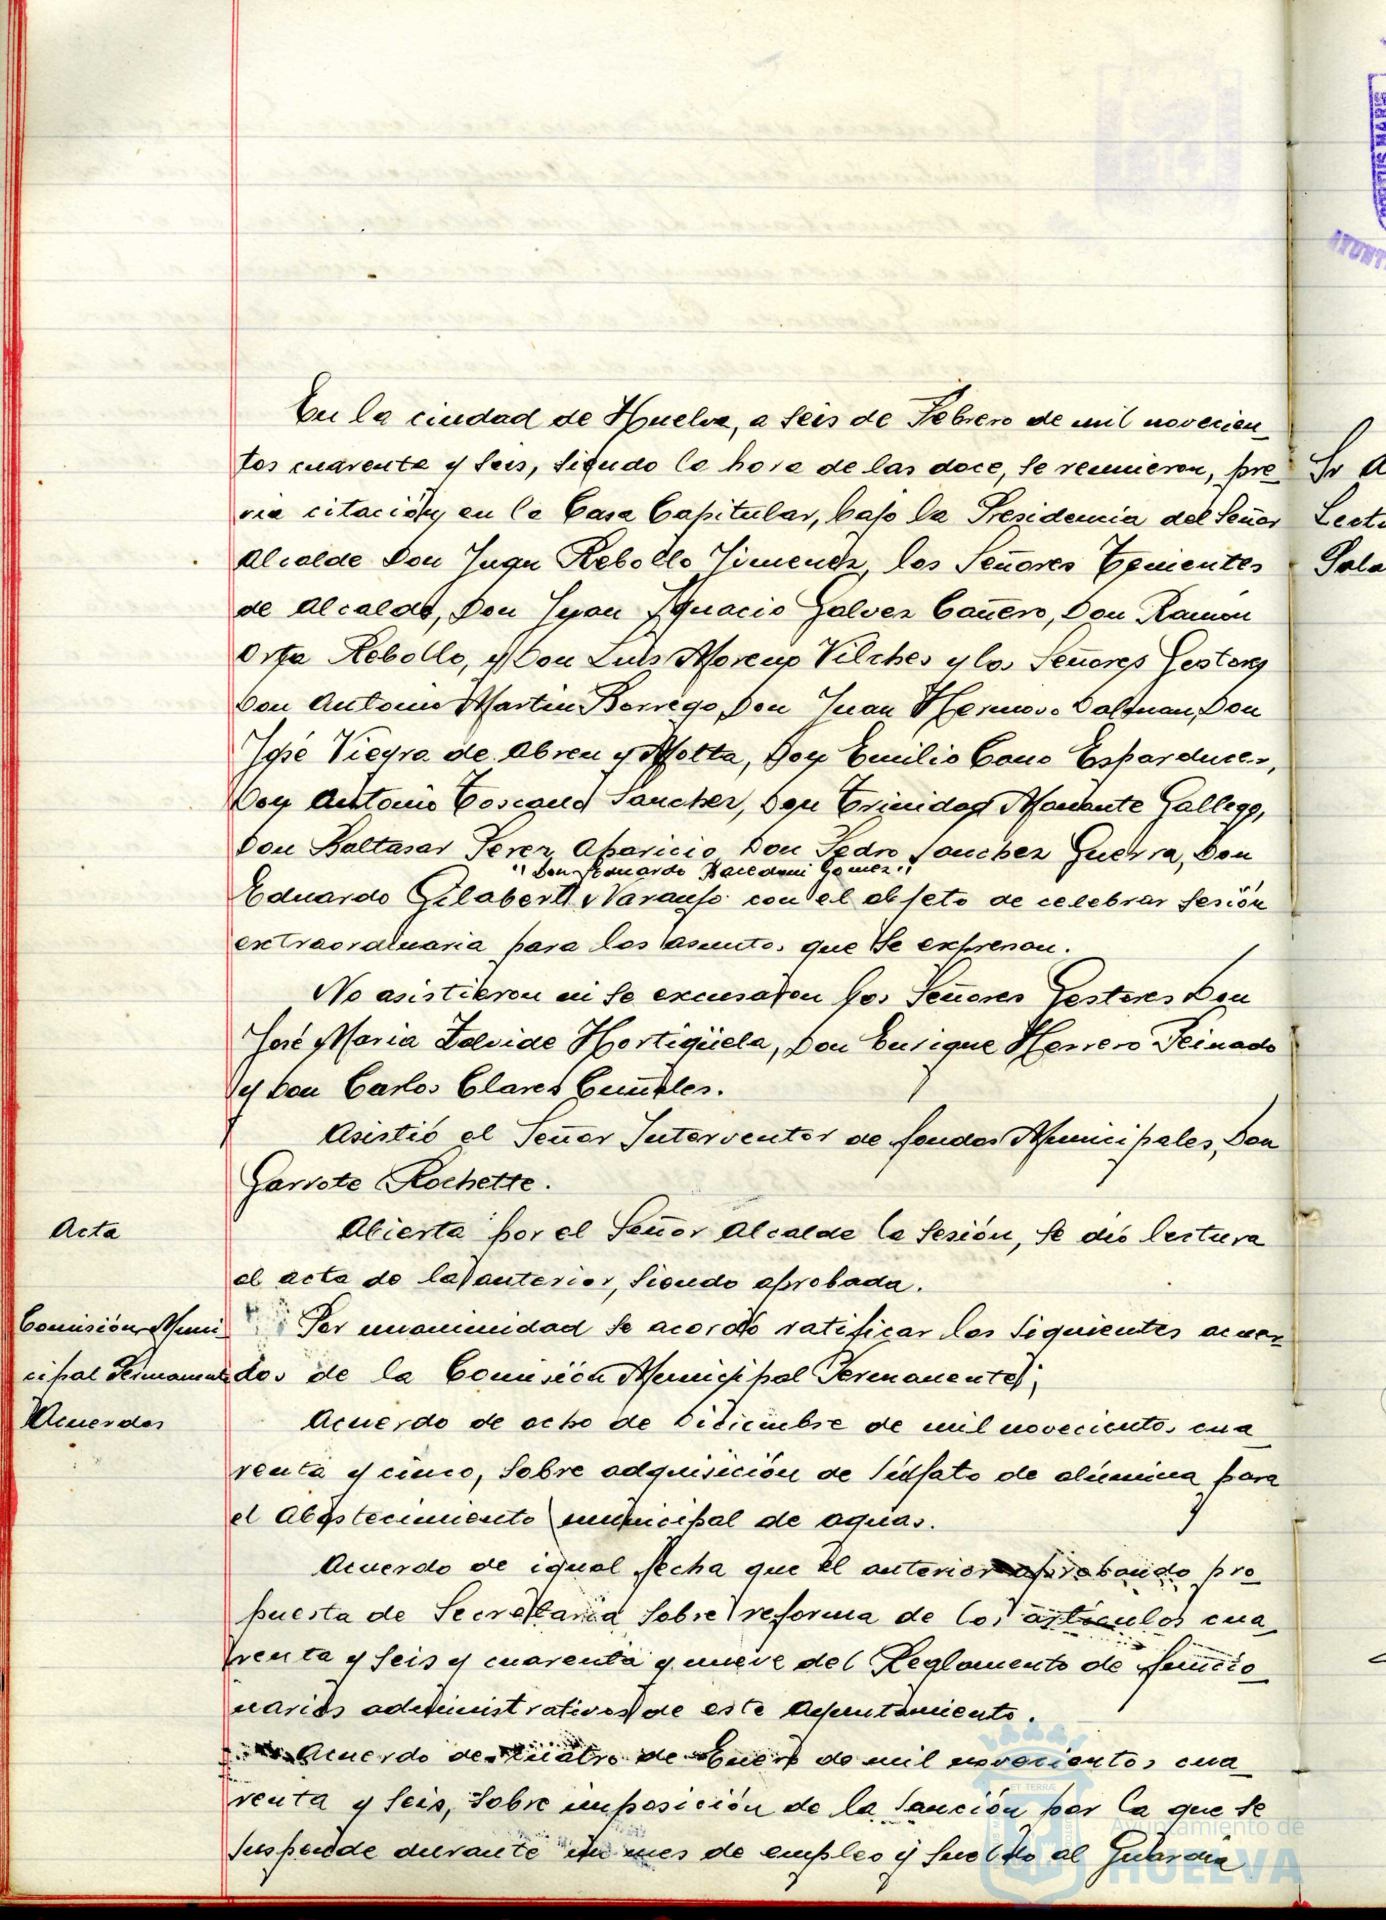 En la ciudad de Huelva, a seis de Febrero de mil novecien-
tos cuarenta y seis, siendo la hora de las doce, se reunieron, pre-
via citación, en la Casa Capitular, bajo la Presidencia del Señor
Alcalde Don Juan Rebollo Jimenez, los Señores Tenientes
de Alcalde, Don Juan Ignacio Galvez Cañero, Don Ramón
Orta Rebollo, y Don Luis Moreno Vilches y los Señores Gestores
Don Antonio Martin Borrego, Don Juan Hermoso Dalman, Don
José Vieyra de Abreu y Motta, Don Emilio Cano Esparducer,
Don Antonio Toscano Sanchez, Don Trinidad Manante Gallego,
Don Baltasar Perez Aparicio, Don Pedro Sanchez Guerra, Don
"Don Eduardo Gomez"
Eduardo Gilabert Naranjo con el objeto de celebrar sesión
extraordinaria para los asuntos que se expresan.
No asistieron ni se excusaron los Señores Gestores Don
José Maria Zalvide Hortigüela, Don Enrique Herrero Peinado
y Don Carlos Clares
Asistió el Señor Interventor de fondos Municipales, Don
Garrote Rochette.
Acta
Abierta por el Señor Alcalde la sesión, se dió lectura
al acta de la anterior, siendo aprobada.
Comisión Muni-
cipal Permanente
Acuerdos
Por unanimidad se acordó ratificar los siguientes acuer-
dos de la Comisión Municipal Permanente;
Acuerdo de ocho de Diciembre de mil novecientos cua-
renta y cinco, sobre adquisición de súlfato de alúmina para
el Abastecimiento municipal de aguas.
Acuerdo de igual fecha que el anterior aprobando pro-
puesta de Secretaria sobre reforma de los artículos cua-
renta y seis y cuarenta y nueve del Reglamento de funcio-
narios administrativos de este Ayuntamiento.
Acuerdo de cuatro de Enero de mil novecientos cua-
renta y seis, sobre imposición de la sanción por la que se
suspende durante un mes de empleo y sueldo al Guardia
Ayuntamiento de
HUELVA
Sr A
Lectu
Pala